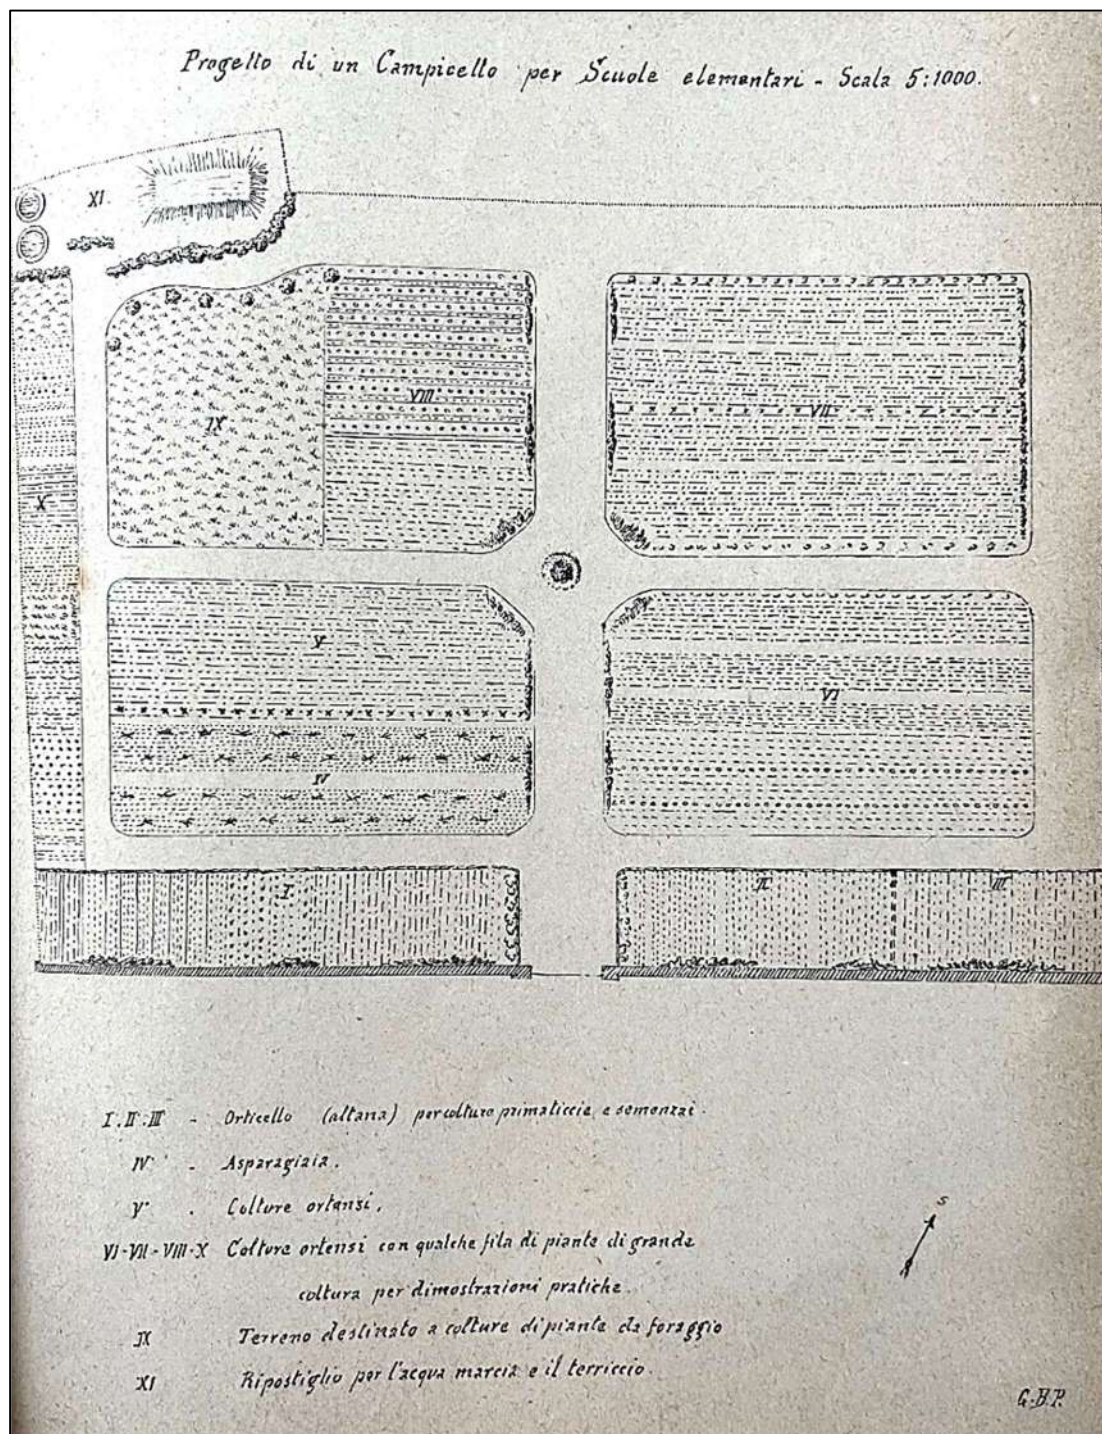 Progetto di un Campicello per Scuole elementari - Scala 5:1000.
XI.
IX
VIII
VII
X
V
VI
IV
I
II
III
I. II. III - Orticello (altana) per colture primaticcie e semenzai.
IV - Asparagiaia.
V . Colture ortensi.
VI-VII-VIII-X Colture ortensi con qualche fila di piante di grande
coltura per dimostrazioni pratiche.
S
IX Terreno destinato a colture di piante da foraggio
XI Ripostiglio per l'acqua marcia e il terriccio.
G.B.P.